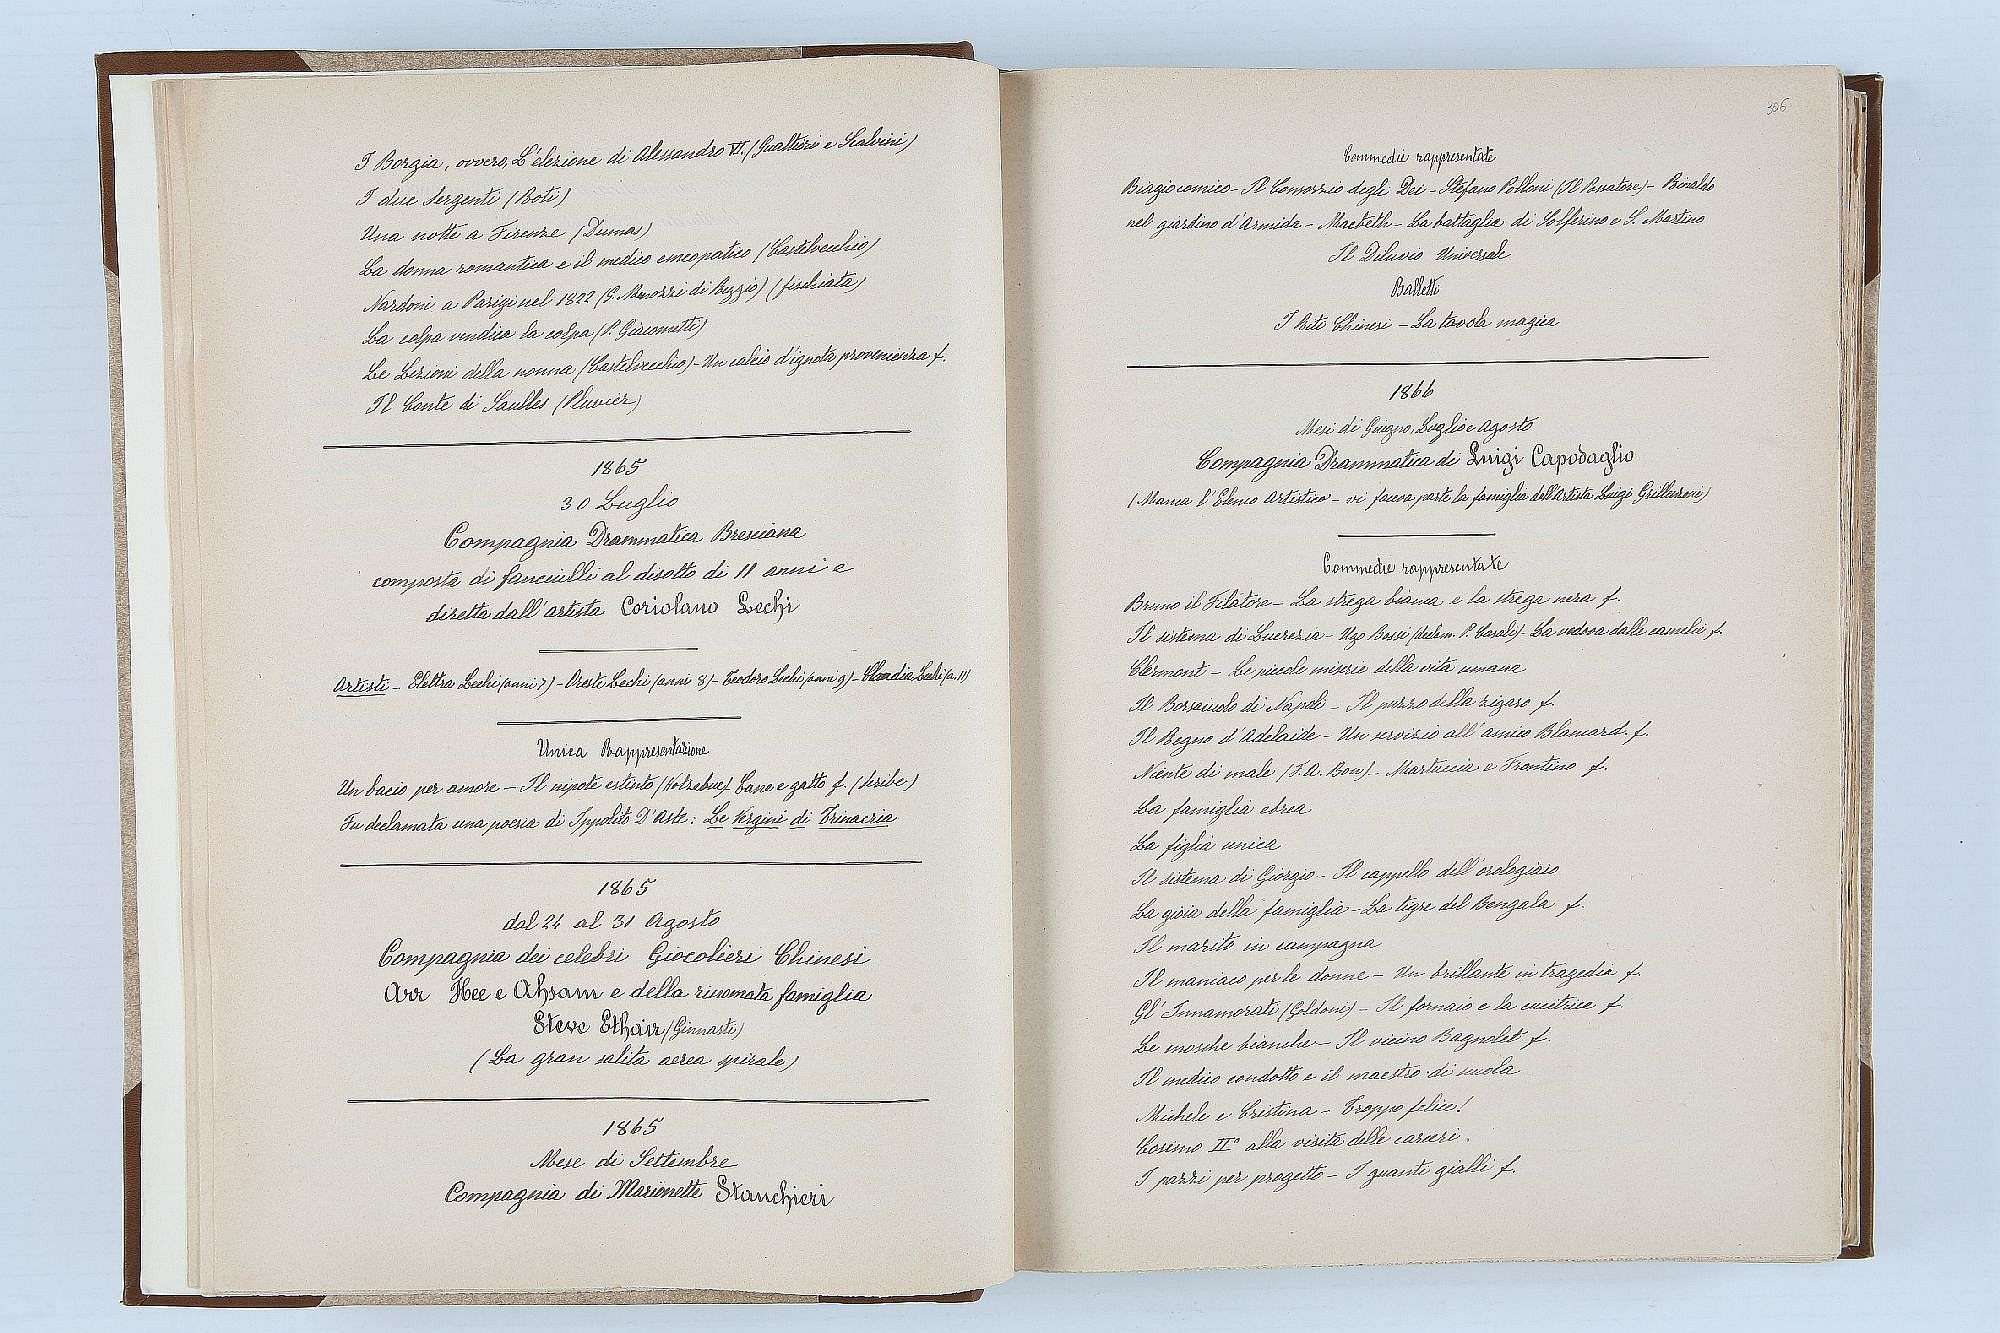 I Borgia, ovvero, L'elezione di Alessandro VI. (Gualtieri e Scalvini)
I due Sergenti (Roti)
Una notte a Firenze (Dumas)
La donna romantica e il medico omeopatico (Castelvecchio)
Nardoni a Parigi nel 1822 (G. Menozzi di Reggio) (fischiata)
La colpa vendica la colpa (P. Giacometti)
Le Lezioni della nonna (Castelvecchio) - Un calcio d'ignota provenienza f.
Il Conte di Saulles (Pluvier)
1865
30 Luglio
Compagnia Drammatica Bresciana
composta di fanciulli al disotto di 11 anni e
diretta dall'artista Coriolano Lechi
Artisti - Elettra Lechi (anni 7) - Oreste Lechi (anni 8) - Teodoro Lechi (anni 9) - Claudia Lechi (a. 11)
Unica Rappresentazione
Un bacio per amore - Il nipote estinto (Kotzebue) Cane e gatto f. (Scribe)
Fu declamata una poesia di Ippolito D'Aste: Le Vergini di Trinacria
1865
dal 24 al 31 Agosto
Compagnia dei celebri Giocolieri Chinesi
Arr Hee e Ahsam e della rinomata famiglia
Steve Ethair (Ginnasti)
(La gran salita aerea spirale)
1865
Mese di Settembre
Compagnia di Marionette Stanchieri
306
Commedie rappresentate
Biagio comico - Il Consorzio degli Dei - Stefano Pelloni (Il Passatore) - Rinaldo
nel giardino d'Armida - Macbeth - La battaglia di Solferino e S. Martino
Il Diluvio Universale
Balletti
I Riti Chinesi - La tavola magica
1866
Mesi di Giugno, Luglio e Agosto
Compagnia Drammatica di Luigi Capodaglio
(Manca l'Elenco Artistico - vi faceva parte la famiglia dell'Artista Luigi Grillanzoni)
Commedie rappresentate
Bruno il Filatore - La strega bianca e la strega nera f.
Il sistema di Lucrezia - Ugo Bassi (declam. P. Casali) - La vedova dalle camelie f.
Clermont - Le piccole miserie della vita umana
Il Borsaiuolo di Napoli - Il pozzo della zigaro f.
Il Regno d'Adelaide - Un servizio all'amico Blamard. f.
Niente di male (F. A. Bon) - Martuccia e Frontino f.
La famiglia ebrea
La figlia unica
Il sistema di Giorgio - Il cappello dell'orologiaio
La gioia della famiglia - La tigre del Bengala f.
Il marito in campagna
Il maniaco per le donne - Un brillante in tragedia f.
Gl'Innamorati (Goldoni) - Il fornaio e la cucitrice f
Le mosche bianche - Il vicino Bagnolet f.
Il medico condotto e il maestro di scuola
Michele e Cristina - Troppo felice!
Cosimo II° alla visita delle carceri.
I pazzi per progetto - I guanti gialli f.